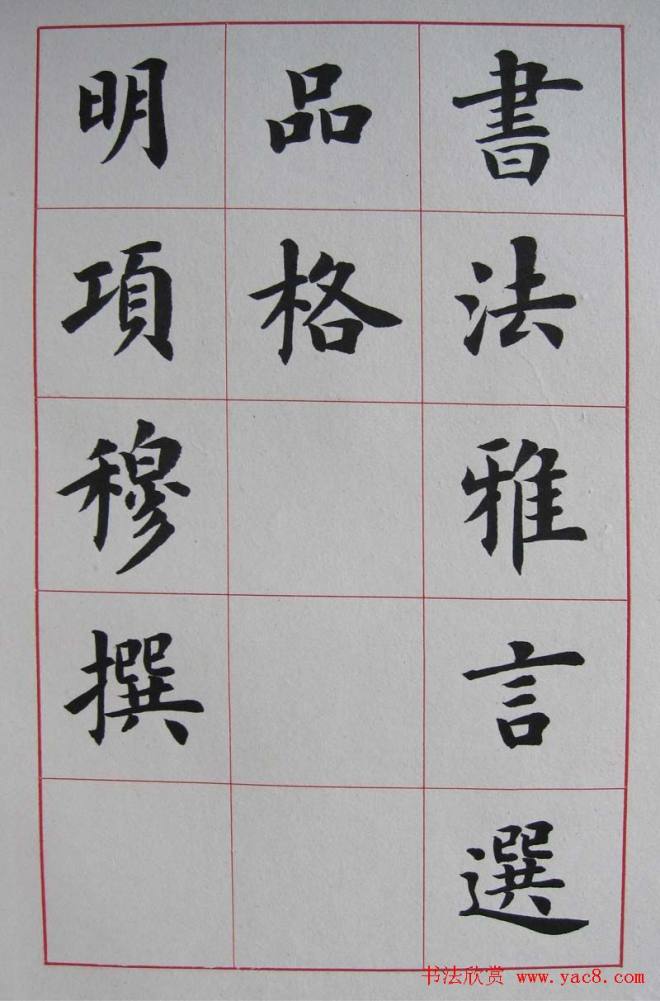 書法雅言選
品格
明項穆撰
书法欣赏 www.yac8.com